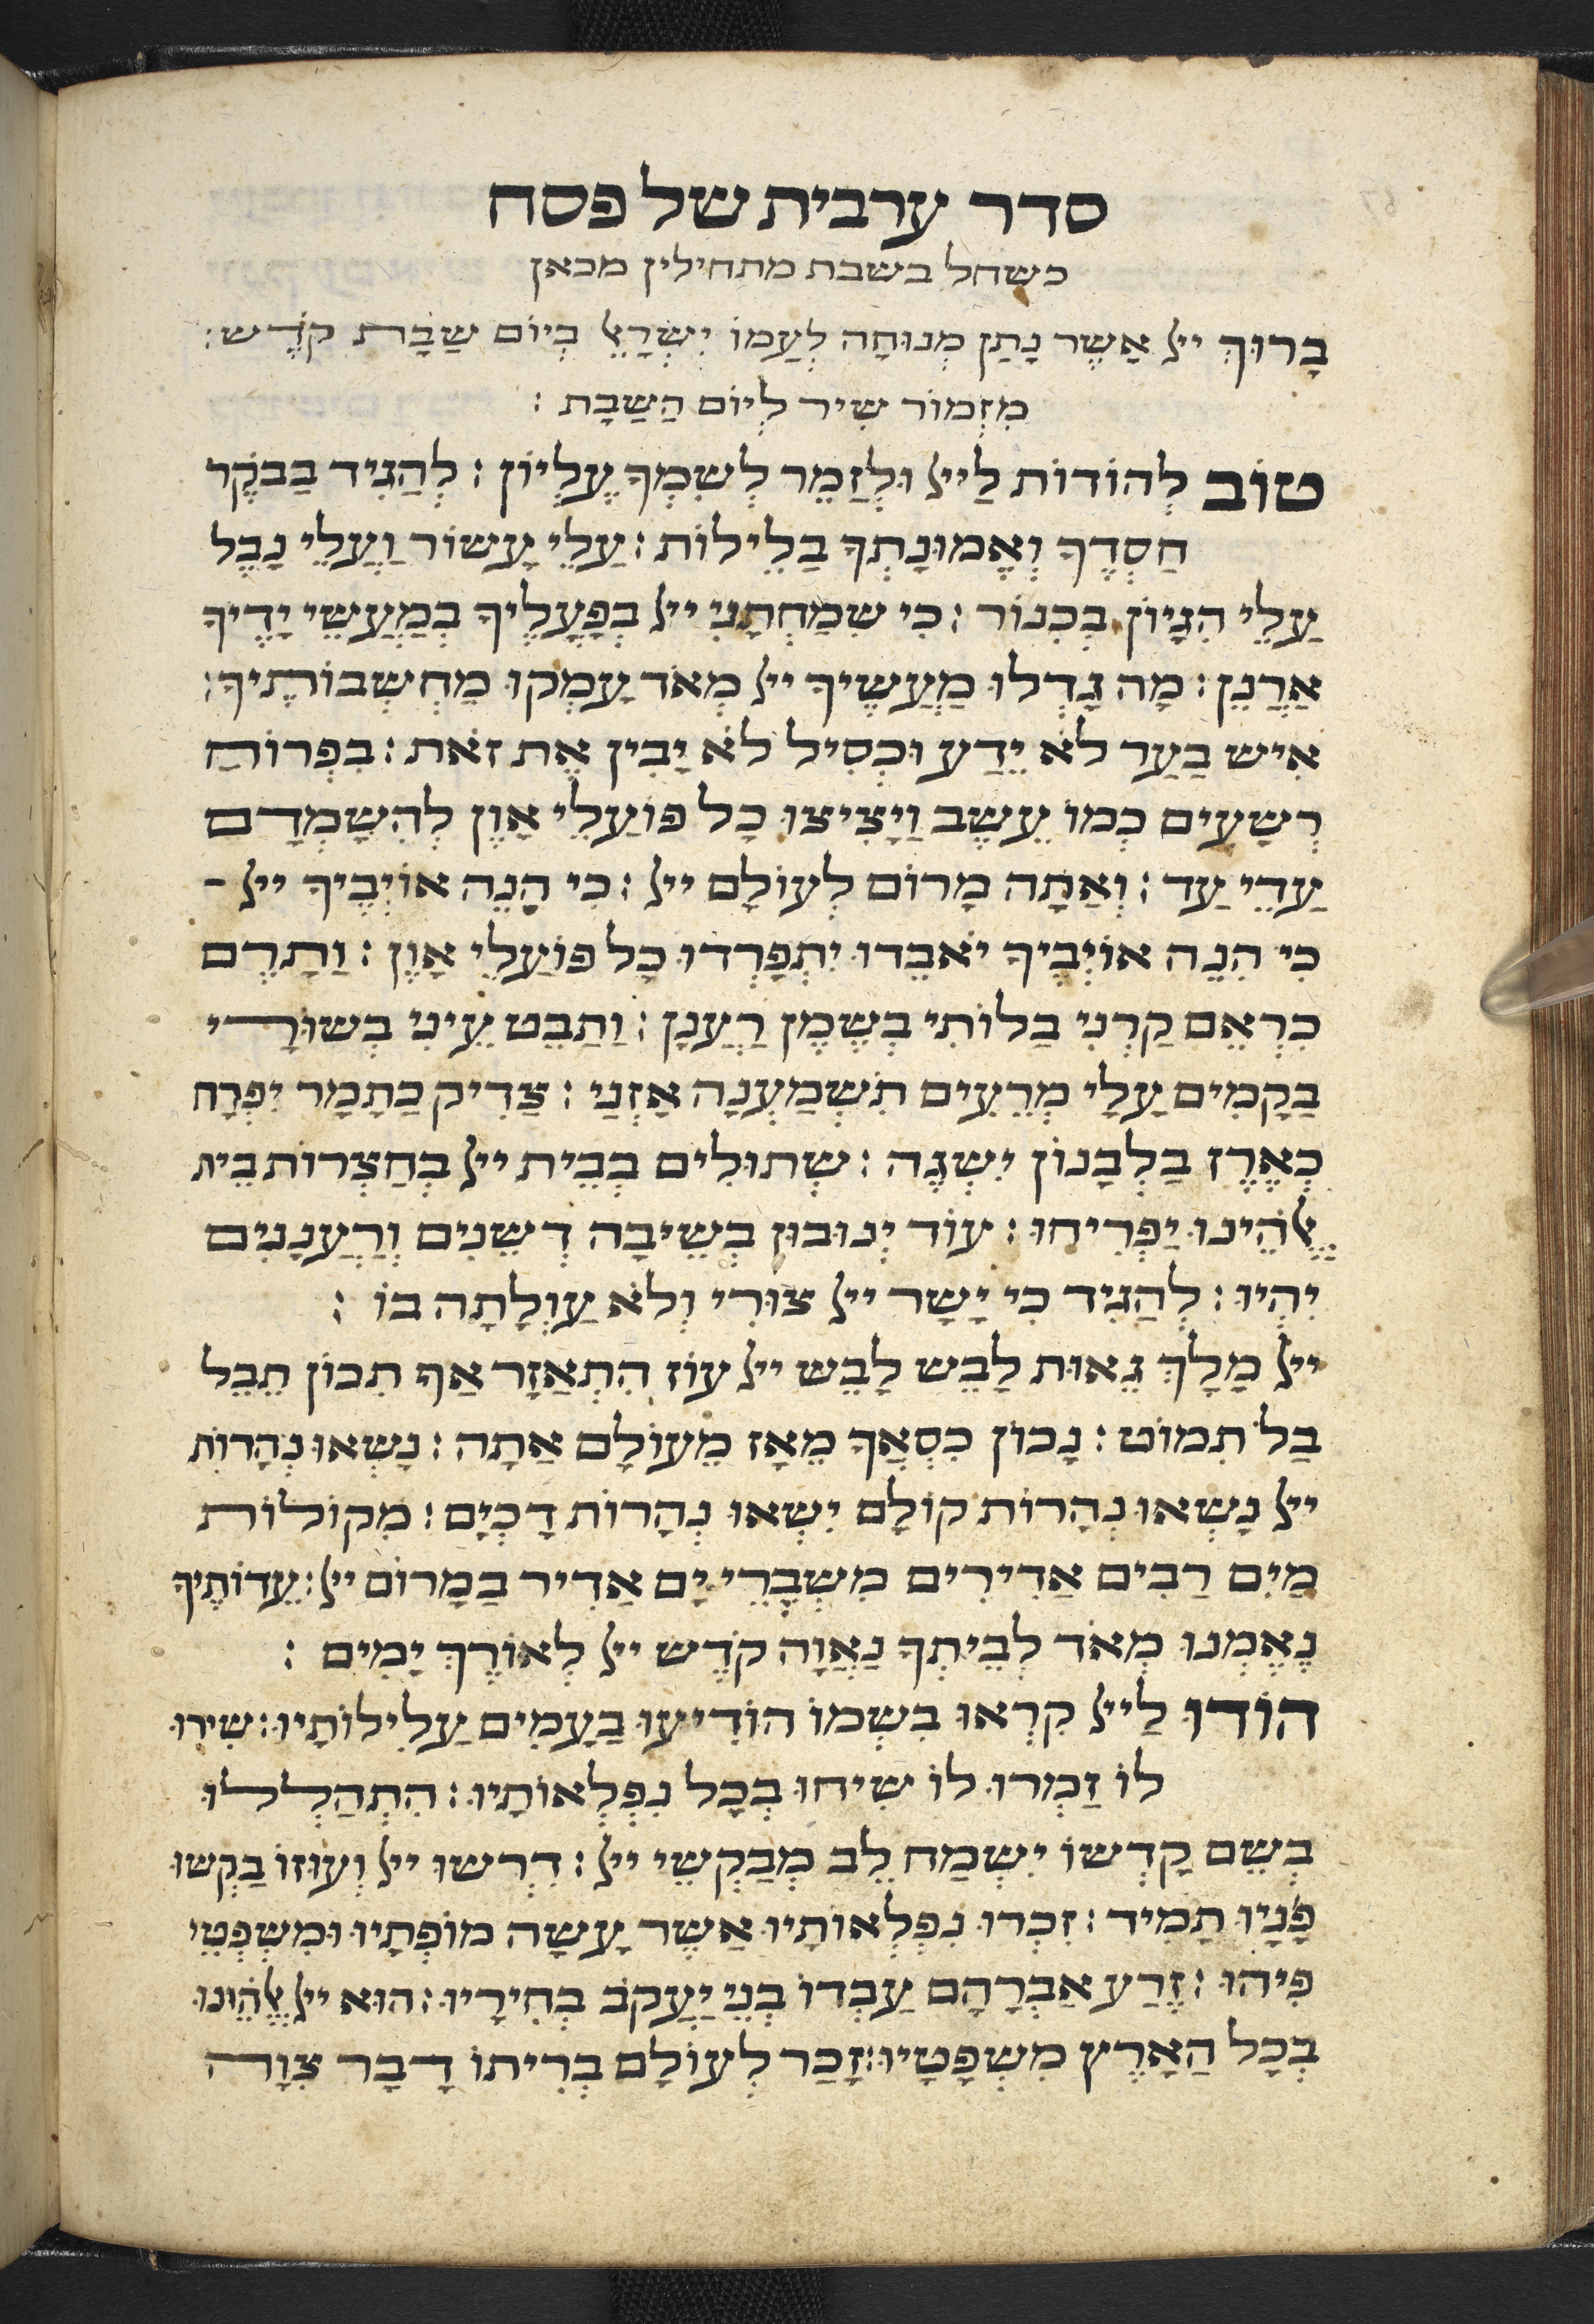 סדר ערבית של פסח
כשחל בשבת מתחילין מכאן
בָרוּךְ יי אַשֶר נָתַן מְנוּחָה לְעַמוֹ יִשְרָאֵל בְיוֹם שַבָת קֹדֶש׃
מִזְמוֹר שִיר לְיוֹם הַשַבָת׃
טוֹב לְהוֹדוֹת לַיי וּלְזַמֵר לְשִמְךָ עֶלְיוֹן׃ לְהַגִיד בַבֹקֶר
חַסְדֶךָ וְאֱמוּנָתְךָ בַלֵילוֹת׃ עַלֵי עָשוֹר וַעֲלֵי נָבֶל
עַלֵי הִגָיוֹן בְכִנוֹר׃ כִי שִמַחְתָנִי יי בְפָעֳלֶיךָ בְמַעֲשֵי יָדֶיךָ
אַרַנֵן׃ מָה גָדְלוּ מַעֲשֶיךָ יי מְאֹד עָמְקוּ מַחְשְבוֹתֶיךָ׃
אִיש בַעַר לֹא יֵדַע וּכְסִיל לֹא יָבִין אֶת זֹאת׃ בִפְרוֹחַ
רְשָעִים כְמוֹ עֵשֶב וַיָצִיצוּ כָל פוֹעַלֵי אָוֶן לְהִשָמְדָם
עַדֵי עַד׃ וְאַתָה מָרוֹם לְעוֹלָם יי׃ כִי הִנֵה אוֹיְבֶיךָ יי -
כִי הִנֵה אוֹיְבֶיךָ יֹאבֵדוּ יִתְפָרְדוּ כָל פוֹעַלֵי אָוֶן׃ וַתָרֶם
כִרְאֵם קַרְנִי בַלוֹתִי בְשֶמֶן רַעֲנָן׃ וַתַבֵט עֵינִי בְשוּרָי
בַקָמִים עָלַי מְרֵעִים תִשְמַעְנָה אָזְנַי׃ צַדִיק כַתָמָר יִפְרָח
כְאֶרֶז בַלְבָנוֹן יִשְגֶה׃ שְתוּלִים בְבֵית יי בְחַצְרוֹת בֵית
אֱלֹהֵינוּ יַפְרִיחוּ׃ עוֹד יְנוּבוּן בְשֵיבָה דְשֵנִים וְרַעֲנַנִים
יִהְיוּ׃ לְהַגִיד כִי יָשָר יי צוּרִי וְלֹא עַוְלָתָה בוֹ׃
יי מָלָךְ גֵאוּת לָבֵש לָבֵש יי עוֹז הִתְאַזָר אַף תִכוֹן תֵבֵל
בַל תִמוֹט׃ נָכוֹן כִסְאֲךָ מֵאָז מֵעוֹלָם אַתָה׃ נָשְאוּ נְהָרוֹת
יי נָשְאוּ נְהָרוֹת קוֹלָם יִשְאוּ נְהָרוֹת דָכְיָם׃ מִקוֹלוֹת
מַיִם רַבִים אַדִירִים מִשְבָרֵי יָם אַדִיר בַמָרוֹם יי׃ עֵדוֹתֶיךָ
נֶאֶמְנוּ מְאֹד לְבֵיתְךָ נַאֲוָה קֹדֶש יי לְאוֹרֶךְ יָמִים׃
הוֹדוּ לַיי קִרְאוּ בִשְמוֹ הוֹדִיעוּ בָעַמִים עַלִילוֹתָיו׃ שִירוּ
לוֹ זַמְרוּ לוֹ שִיחוּ בְכָל נִפְלְאוֹתָיו׃ הִתְהַלְלוּ
בְשֵם קָדְשוֹ יִשְמַח לֵב מְבַקְשֵי יי׃ דִרְשוּ יי וְעוּזוֹ בַקְשוּ
פָנָיו תָמִיד׃ זִכְרוּ נִפְלְאוֹתָיו אַשֶר עָשָה מוֹפְתָיו וּמִשְפְטֵי
פִיהוּ׃ זֶרַע אַבְרָהָם עַבְדוֹ בְנֵי יַעֲקֹב בְחִירָיו׃ הוּא יי אֱלֹהֵינוּ
בְכָל הָאָרֶץ מִשְפָטָיו׃ זָכַר לְעוֹלָם בְרִיתוֹ דָבָר צִוָה